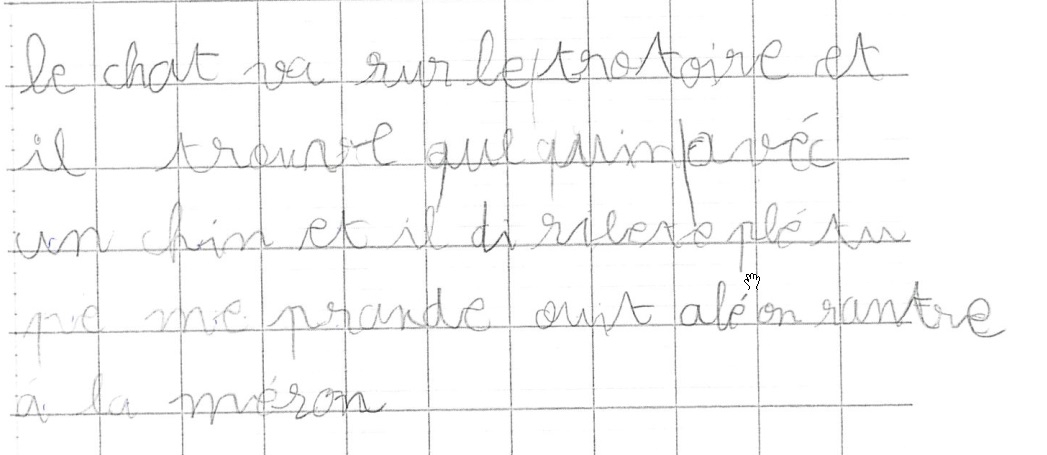 le chat va sur le trotoire et
il trouve quelquin avéc
un chin et il di silevoplé tu
pe me prande ouit alé on rantre
a la méson